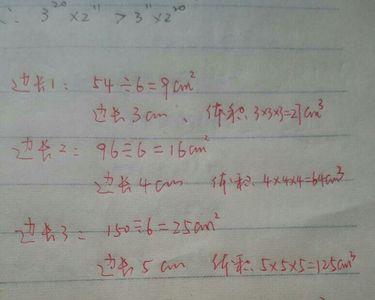 ∴ 3²⁰×2¹¹ > 3¹¹×2²⁰
边长1: 54÷6=9cm²
边长3cm、体积:3×3×3=27cm³
边长2: 96÷6=16cm²
边长4cm 体积:4×4×4=64cm³
边长3: 150÷6=25cm²
边长5cm 体积:5×5×5=125cm³